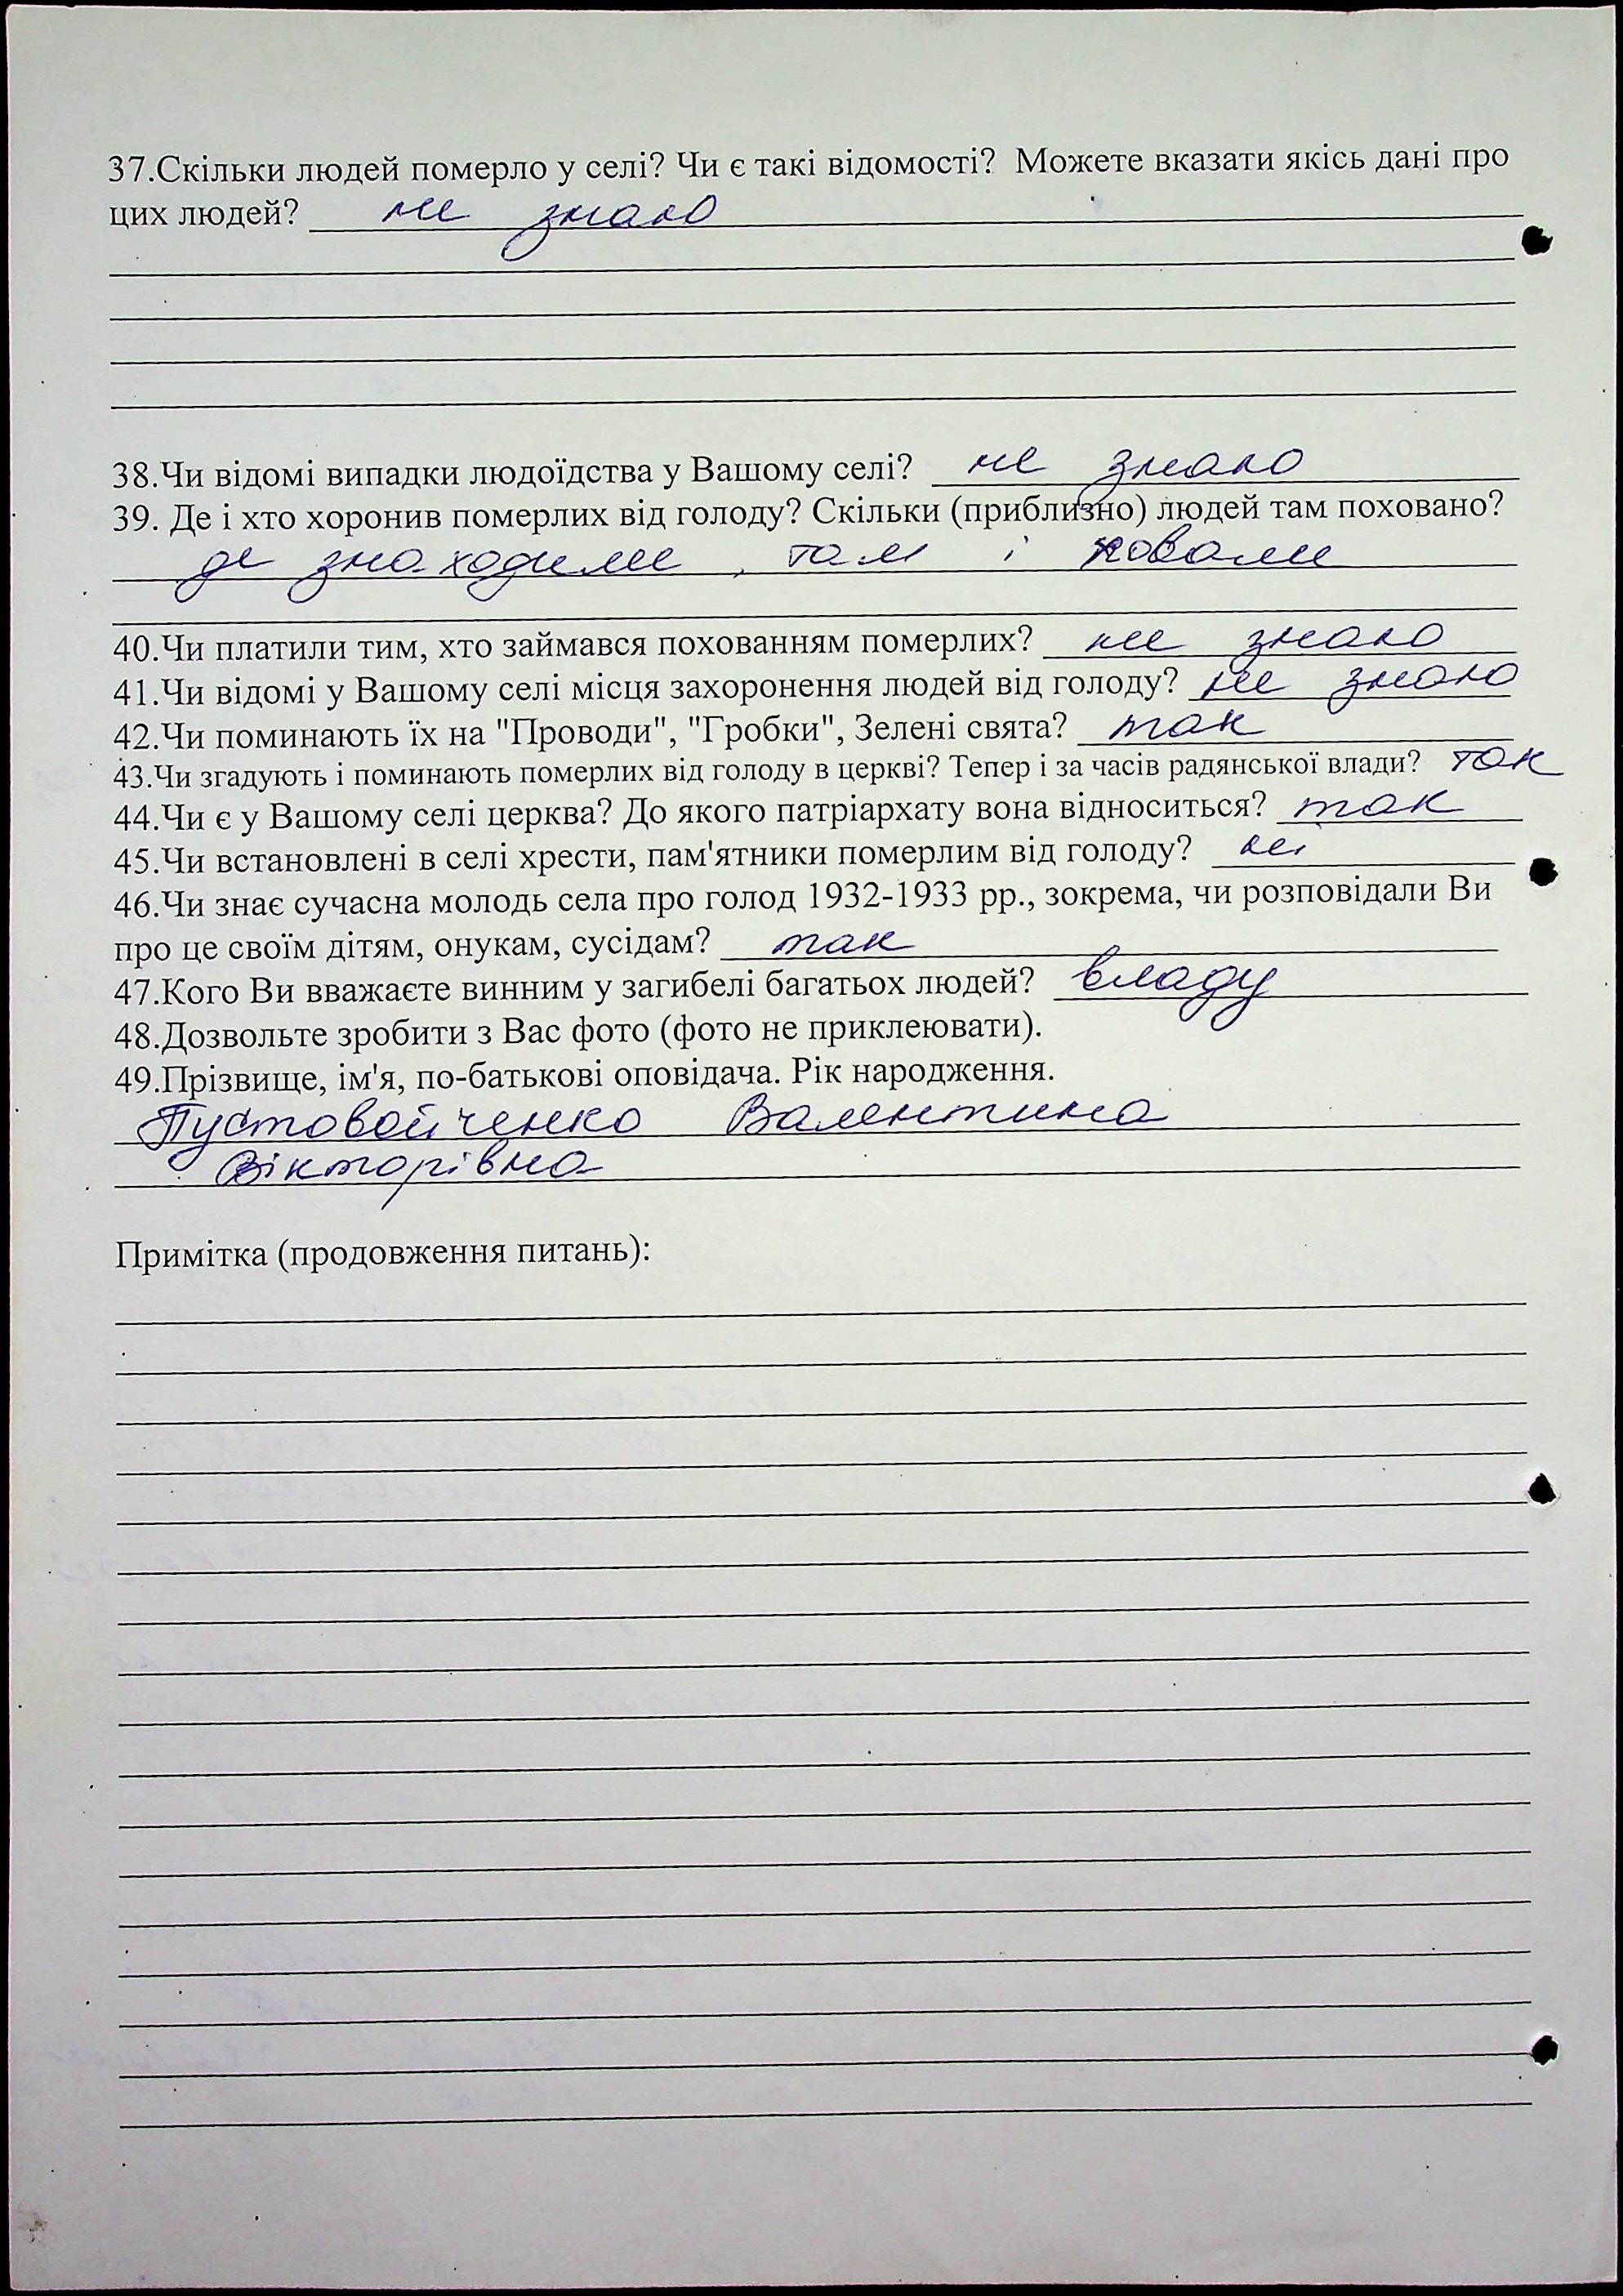 37.Скільки людей померло у селі? Чи є такі відомості? Можете вказати якісь дані про
цих людей? не знаю
38.Чи відомі випадки людоїдства у Вашому селі? не знаю
39. Де і хто хоронив померлих від голоду? Скільки (приблизно) людей там поховано?
де знаходили, там і ховали
40.Чи платили тим, хто займався похованням померлих? не знаю
41.Чи відомі у Вашому селі місця захоронення людей від голоду? не знаю
42.Чи поминають їх на "Проводи", "Гробки", Зелені свята? так
43.Чи згадують і поминають померлих від голоду в церкві? Тепер і за часів радянської влади? так
44.Чи є у Вашому селі церква? До якого патріархату вона відноситься? так
45.Чи встановлені в селі хрести, пам'ятники померлим від голоду? ні
46.Чи знає сучасна молодь села про голод 1932-1933 рр., зокрема, чи розповідали Ви
про це своїм дітям, онукам, сусідам? так
47.Кого Ви вважаєте винним у загибелі багатьох людей? владу
48.Дозвольте зробити з Вас фото (фото не приклеювати).
49.Прізвище, ім'я, по-батькові оповідача. Рік народження.
Пустовойченко Валентина
Вікторівна
Примітка (продовження питань):